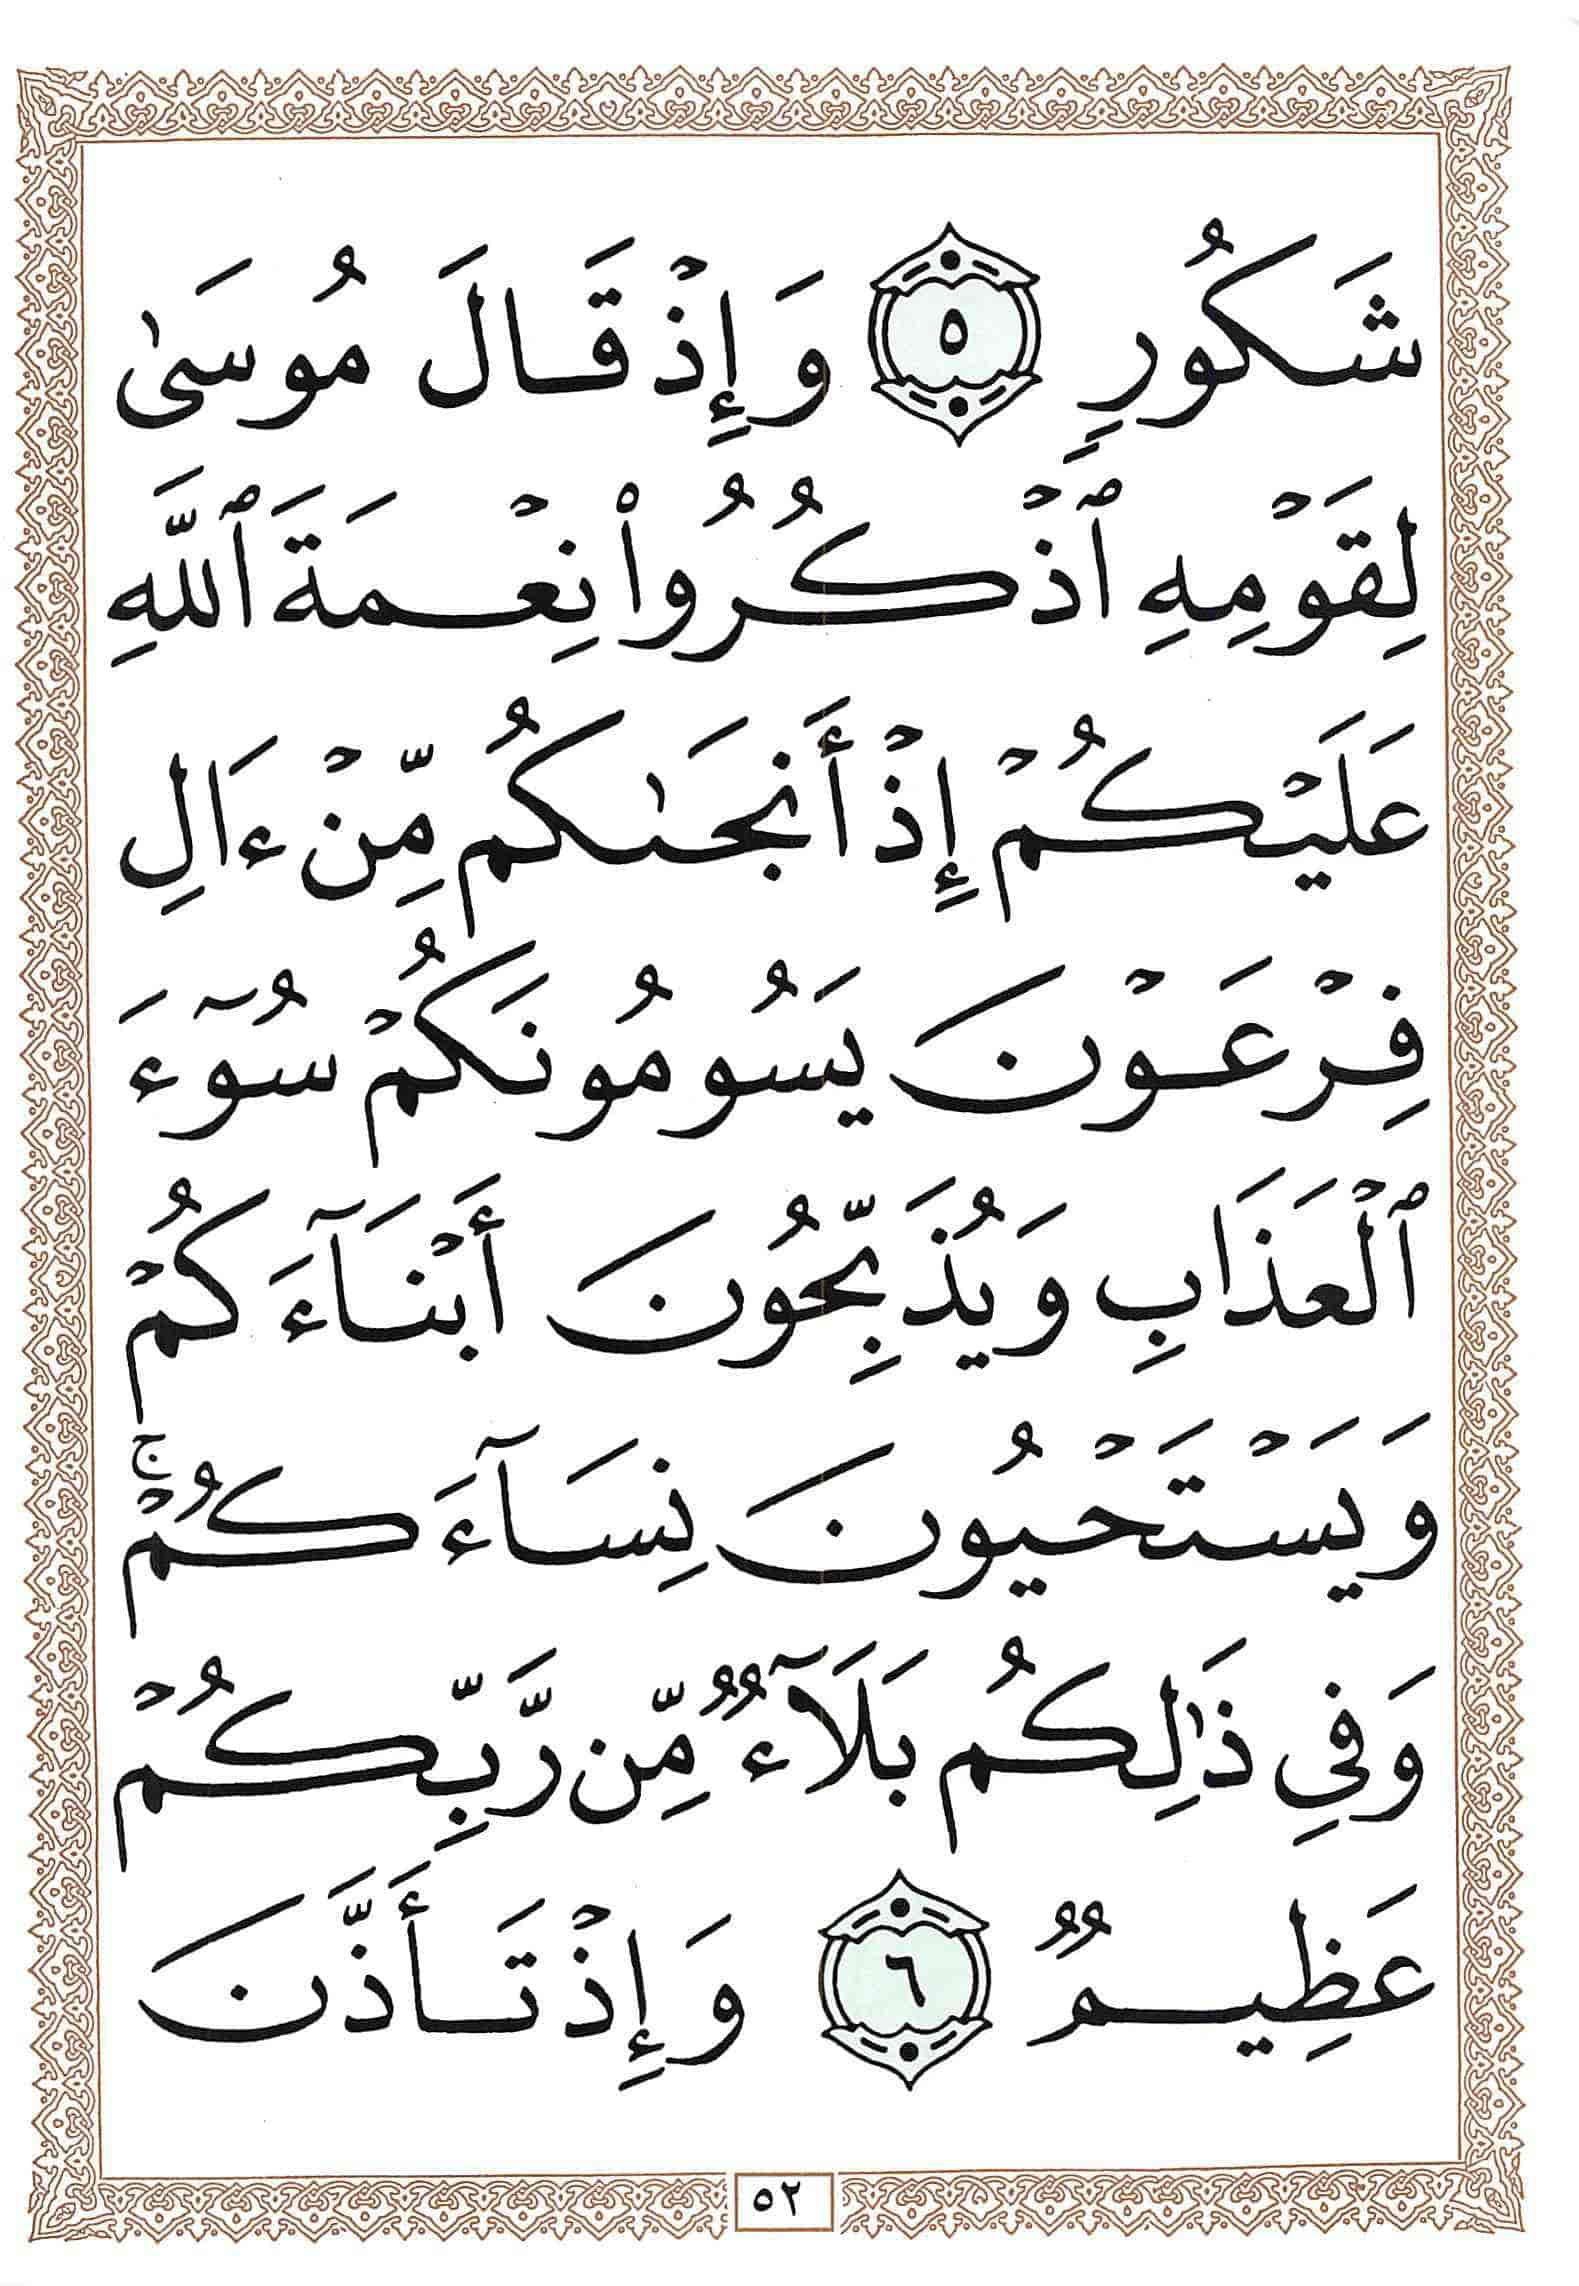 شَكُورٍ ٥ وَإِذْ قَالَ مُوسَىٰ
لِقَوْمِهِ ٱذْكُرُوا۟ نِعْمَةَ ٱللَّهِ
عَلَيْكُمْ إِذْ أَنجَىٰكُم مِّنْ ءَالِ
فِرْعَوْنَ يَسُومُونَكُمْ سُوٓءَ
ٱلْعَذَابِ وَيُذَبِّحُونَ أَبْنَآءَكُمْ
وَيَسْتَحْيُونَ نِسَآءَكُمْ ۚ
وَفِي ذَٰلِكُم بَلَآءٌ مِّن رَّبِّكُمْ
عَظِيمٌ ٦ وَإِذْ تَأَذَّنَ
٥٢